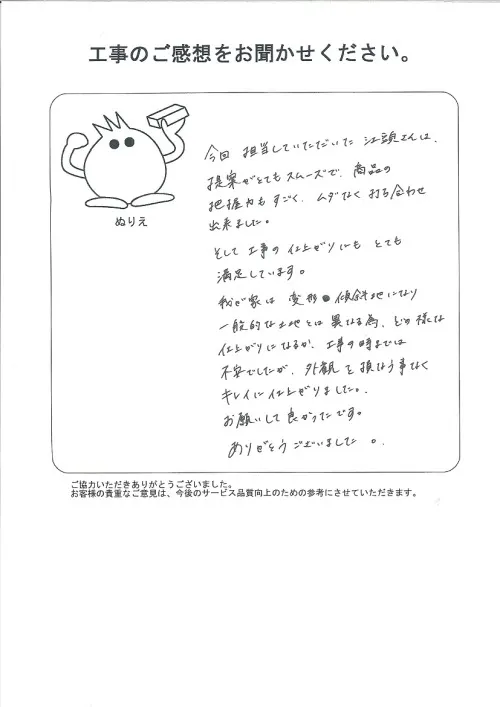 工事のご感想をお聞かせください。
ぬりえ
今回 担当していただいた 江頭さんは、
提案がとてもスムーズで、商品の
把握力もすごく、ムダなく打ち合わせ
出来ました。
そして工事の仕上がりにも とても
満足しています。
我が家は 変形 傾斜地になり
一般的な土地とは異なる為、どの様な
仕上がりになるか、工事の時までは
不安でしたが、外観を損なう事なく
キレイに仕上がりました。
お願いして良かったです。
ありがとうございました。
ご協力いただきありがとうございました。
お客様の貴重なご意見は、今後のサービス品質向上のための参考にさせていただきます。